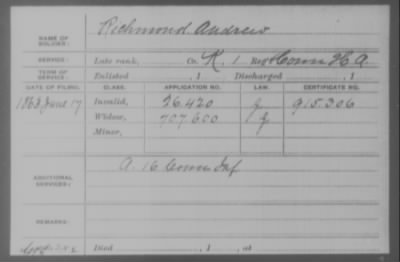 NAME OF SOLDIER: Richmond Andrew
SERVICE: Late rank, Co. K, 1 Reg Conn H A.
TERM OF SERVICE: Enlisted , 1 Discharged , 1
DATE OF FILING. CLASS. APPLICATION NO. LAW. CERTIFICATE NO.
1863 June 17 Invalid, 26.420 915.306
Widow, 707.600
Minor,
ADDITIONAL SERVICES: A. 16 Conn Inf
REMARKS:
Died , 1 , at